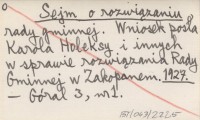 Sejm o rozwiązaniu
rady gminnej. Wniosek posła
Karola Holeksy i innych
w sprawie rozwiązania Rady
Gminnej w Zakopanem. 1927.
— Góral 3, nr 1.